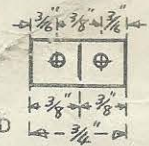 3/8" 3/8" 3/8"
3/8" 3/8"
D 3/4"